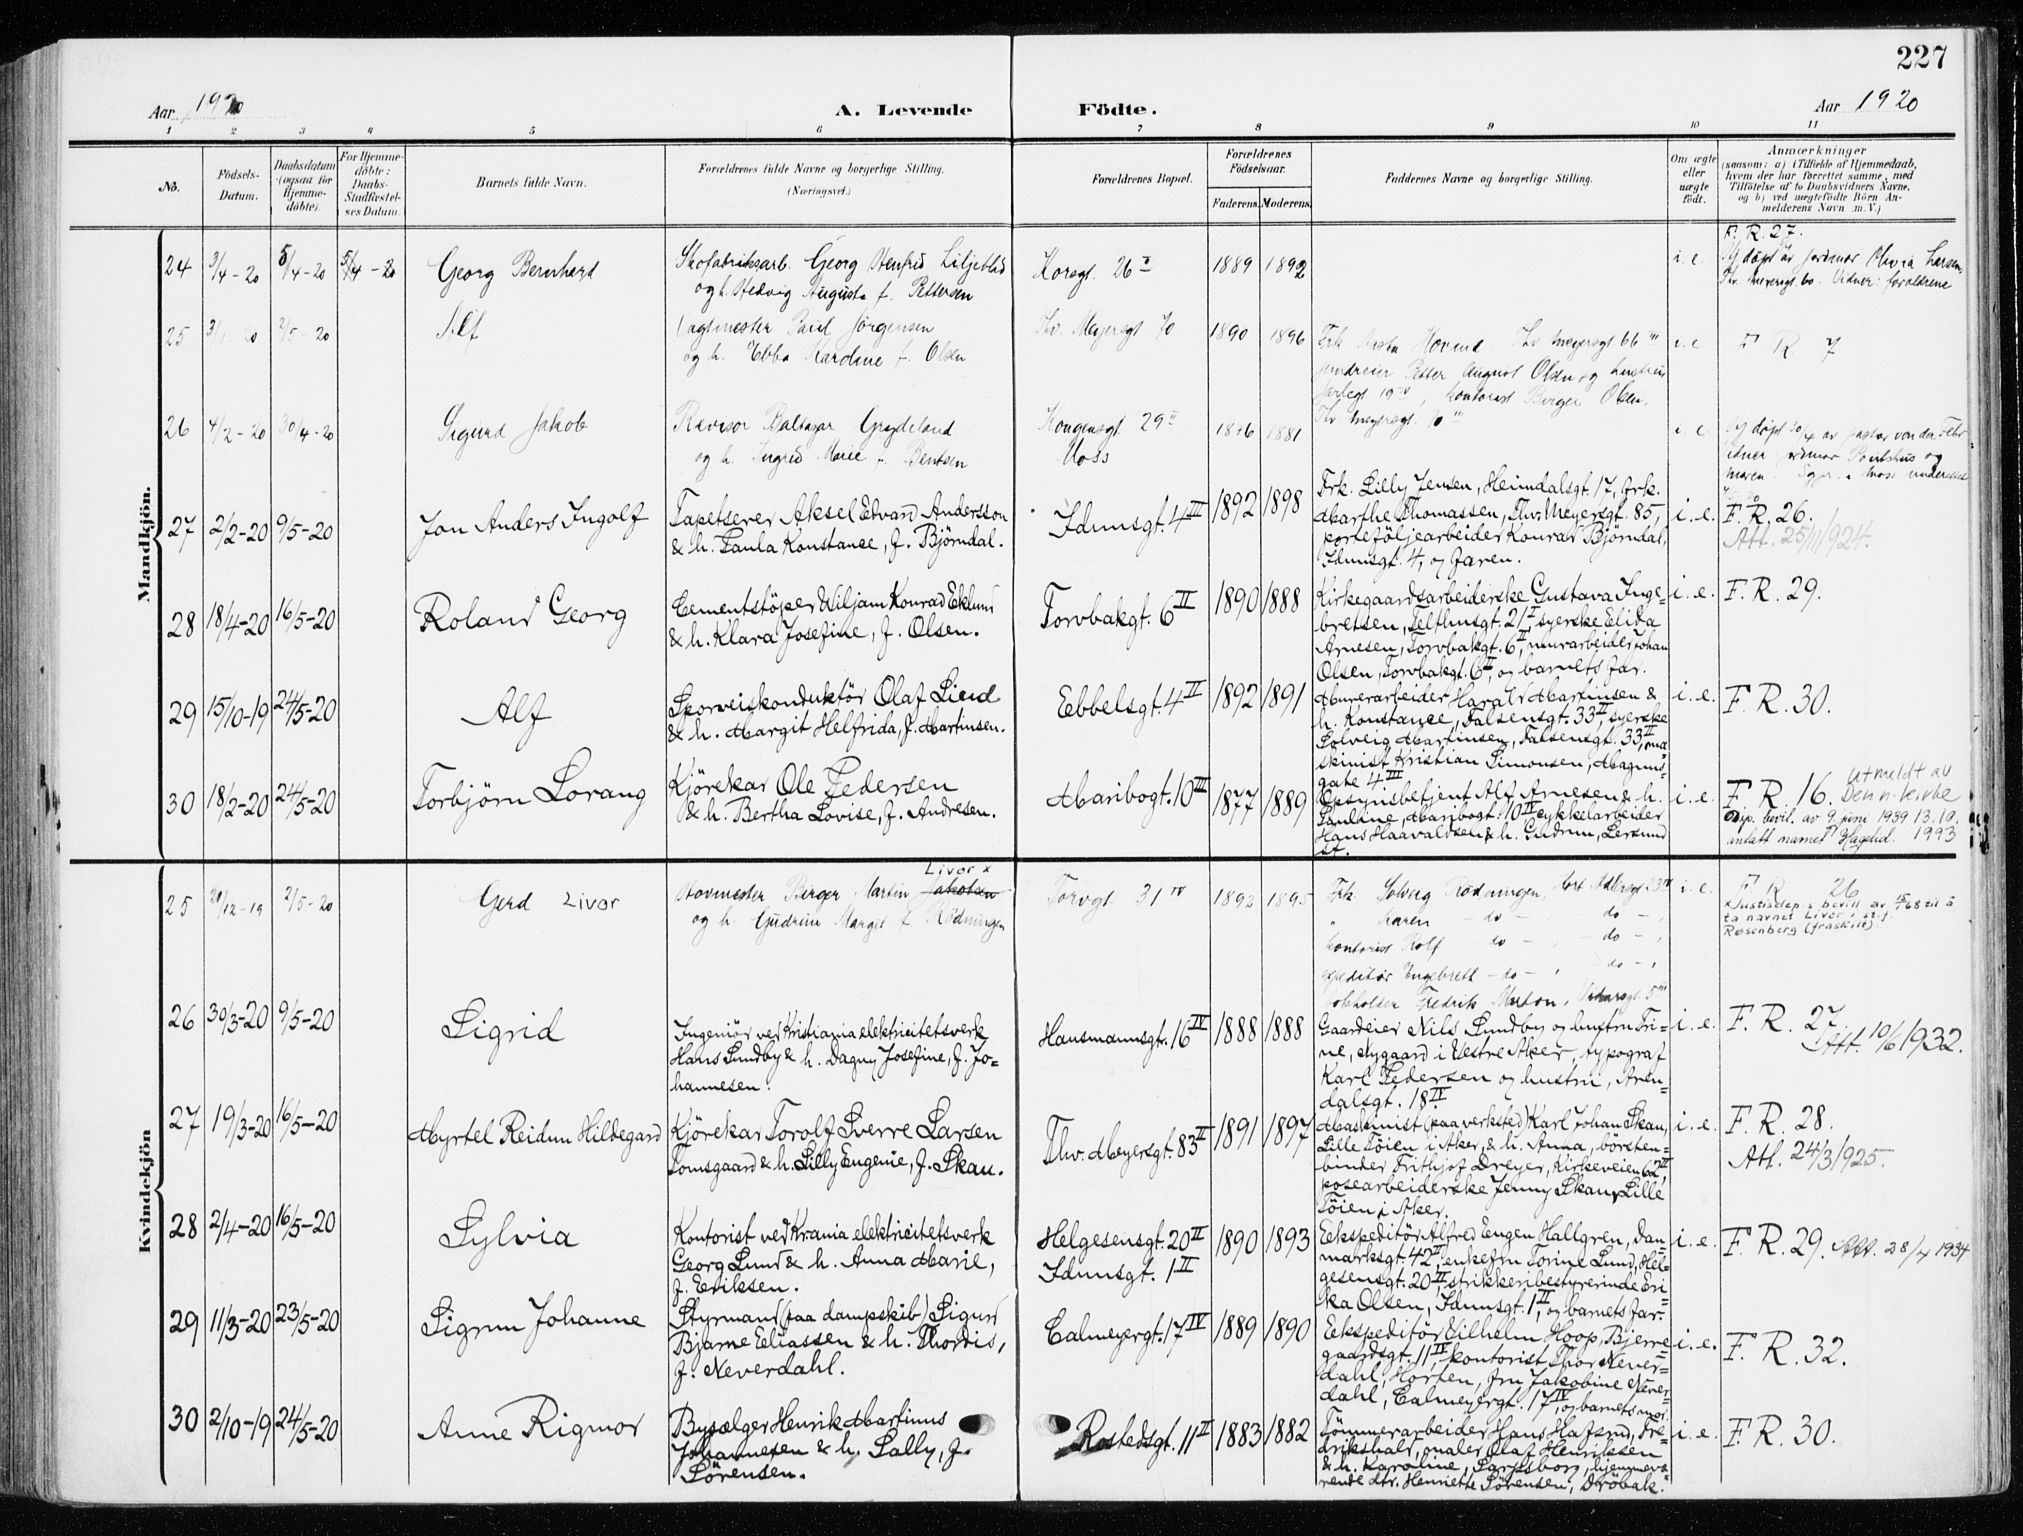 227
Aar 1920
A. Levende Födte.
Aar 1920
1 2 3 4 5 6 7 8 9 10 11
No.
Födsels-Datum.
Daabsdatum (ogsaa for Hjemme-döbte).
For Hjemme-döbte: Daabs-Stadfæstel-ses Datum.
Barnets fulde Navn.
Forældrenes fulde Navne og borgerlige Stilling.
(Næringsvei.)
Forældrenes Bopæl.
Forældrenes Födselsaar.
Faderens. Moderens.
Faddernes Navne og borgerlige Stilling.
Om ægte eller uægte födt.
Anmærkninger
(saasom: a) i Tilfælde af Hjemmedaab,
hvem der har forrettet samme, med
Tilföielse af to Daabsvidners Navne,
og b) ved uægtefödte Börn An-
melderens Navn m. V.)
Mandkjön.
24 3/4-20 5/4-20 5/4-20 Georg Bernhard
Skofabriksarb. Georg Henfrid Liljeblad
og h. Hedvig Augusta f. Pettersen
Korsgt. 26 1889 1892 i.e.
F. R. 27.
Hj döpt av jordmor Olivia Larsen,
Thv. Meyersgt. 60. Vidner: foreldrene
25 2/5-20 Alf
Vagtmester Paul Jörgensen
og h. Ebba Karoline f. Olsen
Thv. Meyersgt 70 1890 1896
Frk. Hovind Thv Meyersgt 66 III
jerndreier Petter August Olsen og hustru
kontorist Birger Olsen,
Thv Meyersgt. 70 III
i.e. F R. 7
26 4/2-20 30/4-20 Sigurd Jakob
Revisor Baltazar Grødeland
og h. Ingrid Marie f. Bentsen
Kongensgt. 29 II
Moss
1881 i.e.
Hj döpt 30/4 av pastor von der Fehr
27 2/2-20 9/5-20 Jon Anders Ingolf
Tapetserer Aksel Edvard Andersson
& h. Paula Konstance, f. Björndal.
Idunsgt. 4 III 1892 1898
Frk. Lilly Jensen, Heimdalsgt. 17, frk.
Marthe Thomassen, Thv. Meyersgt. 85,
porteföljearbeider Konrad Björndal,
Idunsgt. 4, og faren.
i.e. F. R. 26.
Att. 25/11/924.
28 18/4-20 16/5-20 Roland Georg
Cementstöper Wiljam Konrad Eklund
& h. Klara Josefine, f. Olsen.
Torvbakgt. 6 II 1890 1888
Kirkegaardsarbeiderske Gustava Inge-
bretsen, Telthusgt. 21 I, syerske Elida
Arnesen, Torvbakgt. 6 II, murarbeider Johan
Olsen, Torvbakgt. 6 II, og barnets far.
i.e. F. R. 29.
29 15/10-19 24/5-20 Alf
Sporveiskonduktör Olaf Lied
& h. Margit Helfrida, f. Martinsen.
Ebbelsgt. 4 II 1892 1891
Murerarbeider Harald Martinsen &
h. Konstance, Falsensgt. 33 II, syerske
Solveig Martinsen, Falsensgt. 33 II, ma-
skinist Kristian Simonsen, Magnus-
gate 4 III
i.e. F. R. 30.
30 18/2-20 24/5-20 Torbjörn Lorang
Kjörekar Ole Pedersen
& h. Bertha Lovise, f. Andresen.
Maribogt. 10 III 1877 1889
Opsynsbetjent Alf Arnesen & h.
Pauline, Maribogt. 10 IV, cykkelarbeider
Hans Haavaldsen & h. Gudrun, Lersund
st.
i.e. F. R. 16.
utmeldt av
Den n. kirke
13.10.
1993
Dep. bevil. av 9. juni 1939
antatt navnet Hagelid.
Kvindekjön
25 20/12-19 2/5-20 Gerd Livor
Livor x
Hovmester Berger Martin Jakobsen
og h. Gudrun Margit f. Rödningen
Torvgt. 31 IV 1892 1895
Frk. Solveig Rödningen, Cort Adelersgt 23 IV
" Karen - do - do -
kontorist Rolf - do - , - do - ,
expeditör Engebrett - do - , - do - ,
bokholder Fredrik Morton, Vidarsgt. 5 III
i.e. F R 26
x Justisdep.s bevill av 15/68 til å
ta navnet Livor i st. f.
Rosenberg (fraskilt).
26 30/3-20 9/5-20 Sigrid
Ingeniör ved Kristiania elektricitetsverk
Hans Sundby & h. Dagny Josefine, f. Jo-
hannesen.
Hausmannsgt. 16 IV 1888 1888
Gaardeier Nils Sundby og hustru Tri-
ne, Nygaard i Vestre Aker, typograf
Karl Pedersen og hustru, Aren-
dalsgt. 18 II
i.e. F. R. 27.
Att. 10/6 1932.
27 19/3-20 16/5-20 Myrtel Reidun Hildegard
Kjörekar Torolf Sverre Larsen
Tomsgaard & h. Lilly Eugenie, f. Skau.
Thv. Meyersgt. 83 II 1891 1897
Maskinist (paa verksted) Karl Johan Skau,
Lille Töien i Aker, & h. Anna, börsten-
binder Frithjof Dreyer, Kirkeveien 62 II,
posearbeiderske Jenny Skau, Lille
Töien i Aker.
i.e. F. R. 28.
Att. 24/3/925.
28 2/4-20 16/5-20 Sylvia
Kontorist ved Krania elektricitetsverk
Georg Lund & h. Anna Marie,
f. Eriksen.
Helgesensgt. 20 II
Idunsgt. 1 II
1890 1893
Ekspeditör Alfred Eugen Hallgren, Dan-
marksgt. 42 II, enkefru Torine Lund, Hel-
gesensgt. 20 II, strikkeribestyrerinde Eri-
ka Olsen, Idunsgt. 1 II, og barnets far.
i.e. F. R. 29. Att. 28/4 1934
29 11/3-20 23/5-20 Sigrun Johanne
Styrmand (paa dampskib) Sigurd
Bjarne Eliassen & h. Thordis,
f. Neverdahl.
Calmeyergt. 17 IV 1889 1890
Ekspeditör Vilhelm Hoop, Bjerre-
gaardsgt. 11 IV, kontorist Thor Never-
dahl, Horten, fru Jakobine Never-
dahl, Calmeyergt. 17 IV, og barnets mor.
i.e. F. R. 32.
30 2/10-19 24/5-20 Anne Rigmor
Bysælger Henrik Martinus
Johannesen & h. Sally, f.
Sörensen.
Rostedsgt. 11 II 1883 1882
Tömmerarbeider Hans Hafsud, Fre-
drikshald, maler Olaf Henriksen
& h. Karoline, Sarpsborg, hjemmevæ-
rende dtr. Henriette Sörensen, Dröbak.
i.e. F. R. 30.